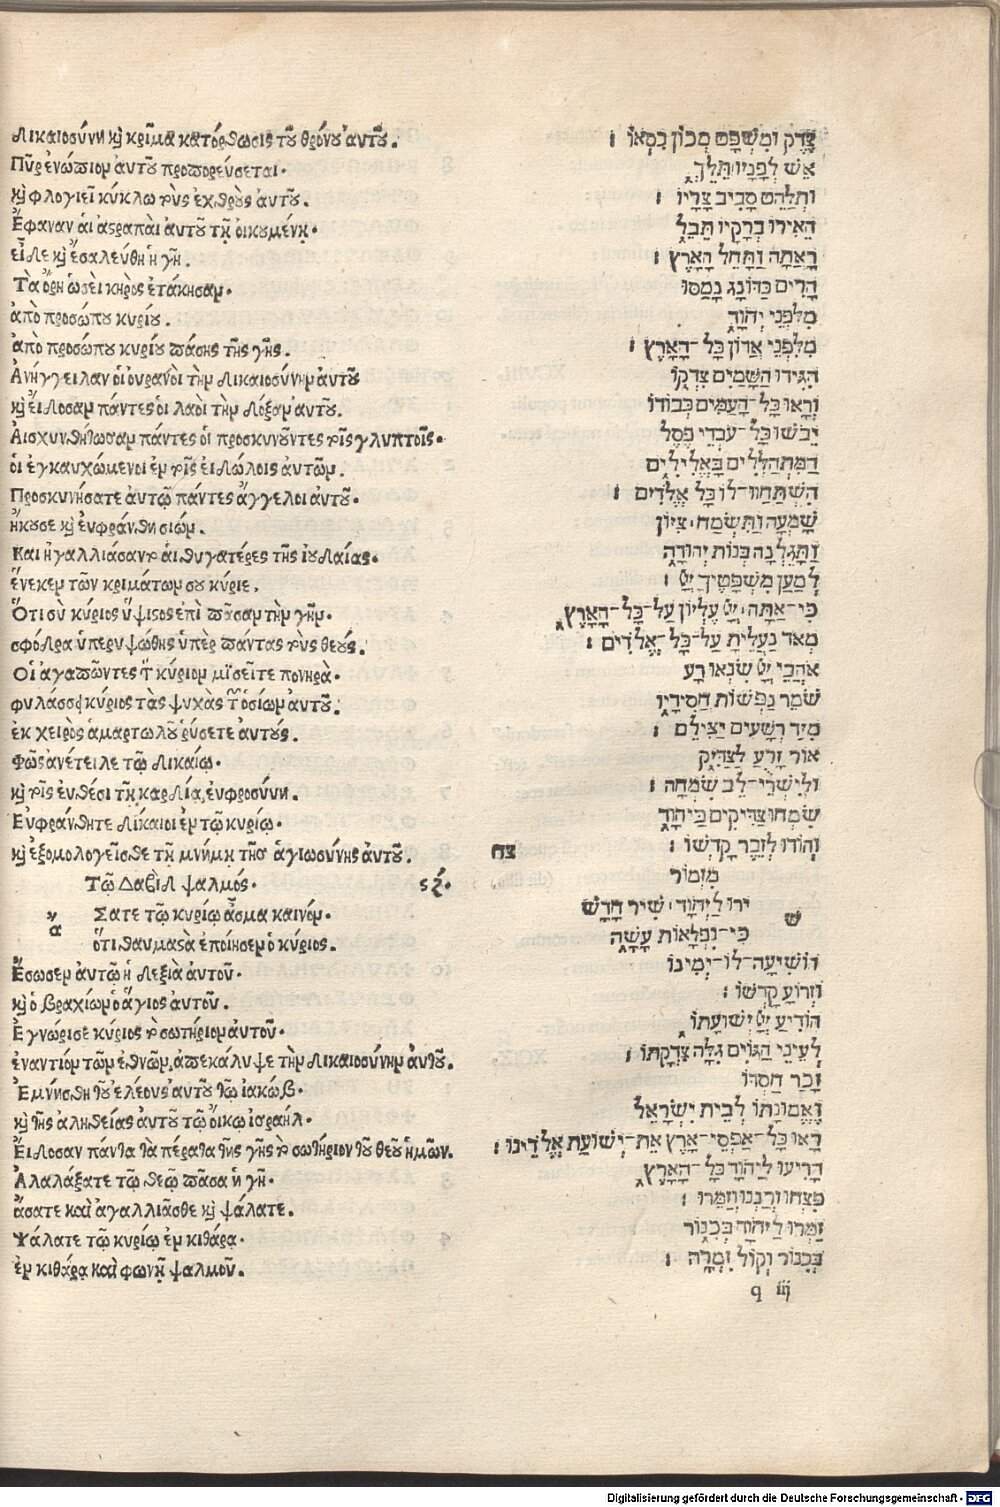 Δικαιοσύνη κ̀ κρῖμα κατόρθωσις τοῦ θρόνου ἀυτοῦ.
Πῦρ ἐνώπιομ ἀυτοῦ προπορέυσεται.
κ̀ φλογιεῖ κύκλω τοὺς ἐχθροὺς ἀυτοῦ.
Ἔφαναν ἁι ἀστραπὰι ἀυτοῦ τῇ ὀικουμένῃ.
εἶδε κ̀ ἐσαλέυθη ἡ γῆ.
Τὰ ὄρη ὡσεὶ κηρὸς ἐτάκησαμ.
ἀπὸ προσώπου κυρίου.
ἀπὸ προσώπου κυρίου πάσης τῆς γῆς.
Ἀνήγγειλαν ὁι ὀυρανὸι τὴμ δικαιοσύνημ ἀυτοῦ
κ̀ ἐίδοσαμ πάντες ὁι λαὸι τὴμ δόξαμ ἀυτοῦ.
Αἰσχυνθήτωσαμ πάντες ὁι προσκυνοῦντες τοῖς γλυπτοῖς.
ὁι ἐγκαυχώμενοι ἐμ τοῖς ἐιδώλοις ἀυτῶμ.
Προσκυνήσατε ἀυτῷ πάντες ἄγγελοι ἀυτοῦ.
ἤκουσε κ̀ ἐυφράνθη σιώμ.
Και ἠγαλλιάσαντο ἁι θυγατέρες τῆς ἰουδαίας.
ἕνεκεμ τῶν κριμάτωμ σου κύριε.
Ὅτι σὺ κύριος ὕψιστος ἐπὶ πᾶσαμ τὴμ γῆμ.
σφόδρα ὑπερυψώθης ὑπὲρ πάντας τοὺς θεούς.
Οἱ ἀγαπῶντες τ̀ κύριομ μισεῖτε πονηρά.
φυλάσσει κύριος τὰς ψυχὰς τῶν ὁσίωμ ἀυτοῦ.
ἐκ χειρὸς ἁμαρτωλοῦ ῥύσετε ἀυτούς.
Φῶς ἀνέτειλε τῷ δικαίῳ.
κ̀ τοῖς ἐυθέσι τῇ καρδίᾳ, ἐυφροσύνη.
Ἐυφράνθητε δίκαιοι ἐμ τῷ κυρίῳ.
κ̀ ἐξομολογεῖσθε τῇ μνήμῃ τῆσ ἁγιωσύνης ἀυτοῦ.
Τῷ Δαβὶδ ψαλμός. ϛζ.
Σατε τῷ κυρίῳ ἆσμα καινόμ.
ὅτι θαυμαστὰ ἐποίησεμ ὁ κύριος.
Ἔσωσεμ ἀυτῷ ἡ δεξιὰ ἀυτοῦ.
κ̀ ὁ βραχίωμ ὁ ἅγιος ἀυτοῦ.
Ἐγνώρισε κύριος τὸ σωτήριομ ἀυτοῦ.
ἐναντίομ τῶμ ἐθνῶμ, ἀπεκάλυψε τὴμ δικαιοσύνημ ἀυτοῦ.
Ἐμνήσθη τοῦ ἐλέους ἀυτοῦ τῷ ἰακώβ.
κ̀ τῆς ἀληθείας ἀυτοῦ τῷ ὄικῳ ἰσραήλ.
Ἔιδοσαν πάντα τὰ πέρατα τῆς γῆς τὸ σωτήριον τοῦ θεοῦ ἡμῶν.
Ἀλαλάξατε τῷ θεῷ πᾶσα ἡ γῆ.
ᾄσατε καὶ ἀγαλλιᾶσθε κ̀ ψάλατε.
Ψάλατε τῷ κυρίῳ ἐμ κιθάρᾳ.
ἐμ κιθάρᾳ καὶ φωνῇ ψαλμοῦ.
צֶדֶק וּמִשְׁפָּט מְכוֹן כִּסְאוֹ :
אֵשׁ לְפָנָיו תֵּלֵךְ
וּתְלַהֵט סָבִיב צָרָיו :
הֵאִירוּ בְרָקָיו תֵּבֵל
רָאֲתָה וַתָּחֵל הָאָרֶץ :
הָרִים כַּדּוֹנַג נָמַסּוּ
מִלִּפְנֵי יְהוָֹה
מִלִּפְנֵי אֲדוֹן כָּל־הָאָרֶץ :
הִגִּידוּ הַשָּׁמַיִם צִדְקוֹ
וְרָאוּ כָל־הָעַמִּים כְּבוֹדוֹ
יֵבֹשׁוּ כָּל־עֹבְדֵי פֶסֶל
הַמִּתְהַלְלִים בָּאֱלִילִים
הִשְׁתַּחֲווּ־לוֹ כָּל אֱלֹהִים :
שָׁמְעָה וַתִּשְׂמַח צִיּוֹן
וַתָּגֵלְנָה בְּנוֹת יְהוּדָה
לְמַעַן מִשְׁפָּטֶיךָ יְיָ :
כִּי־אַתָּה יְיָ עֶלְיוֹן עַל־כָּל־הָאָרֶץ
מְאֹד נַעֲלֵיתָ עַל־כָּל־אֱלֹהִים :
אֹהֲבֵי יְיָ שִׂנְאוּ רָע
שֹׁמֵר נַפְשׁוֹת חֲסִידָיו
מִיַּד רְשָׁעִים יַצִּילֵם :
אוֹר זָרֻעַ לַצַּדִּיק
וּלְיִשְׁרֵי־לֵב שִׂמְחָה :
שִׂמְחוּ צַדִּיקִים בַּיהוָֹה
וְהוֹדוּ לְזֵכֶר קָדְשׁוֹ :
צח
מִזְמוֹר
ירוּ לַיהוָֹה שִׁיר חָדָשׁ
כִּי־נִפְלָאוֹת עָשָׂה
הוֹשִׁיעָה־לּוֹ־יְמִינוֹ
וּזְרוֹעַ קָדְשׁוֹ :
הוֹדִיעַ יְיָ יְשׁוּעָתוֹ
לְעֵינֵי הַגּוֹיִם גִּלָּה צִדְקָתוֹ :
זָכַר חַסְדּוֹ
וֶאֱמוּנָתוֹ לְבֵית יִשְׂרָאֵל
רָאוּ כָל־אַפְסֵי־אָרֶץ אֵת־יְשׁוּעַת אֱלֹהֵינוּ :
הָרִיעוּ לַיהוָֹה כָּל־הָאָרֶץ
פִּצְחוּ וְרַנְּנוּ וְזַמֵּרוּ :
זַמְּרוּ לַיהוָֹה בְּכִנּוֹר
בְּכִנּוֹר וְקוֹל זִמְרָה :
q iij
Digitalisierung gefördert durch die Deutsche Forschungsgemeinschaft - DFG